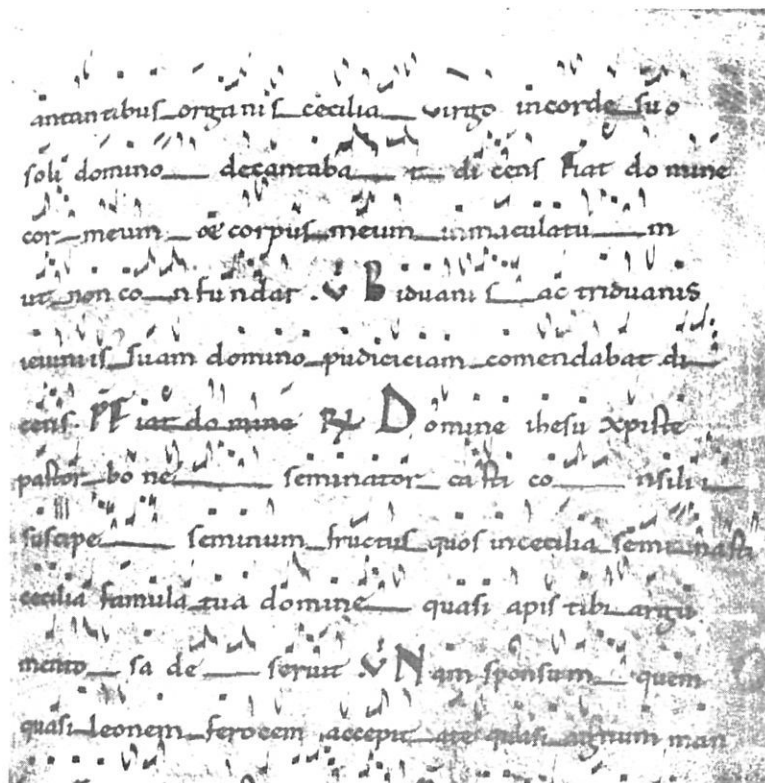 antantibus organis cecilia virgo in corde suo
soli domino decantabat dicens Fiat domine
cor meum & corpus meum inmaculatum
ut non confundar . V Biduanis ac triduanis
ieiuniis suam domino pudiciciam comendabat di
cens. Fiat domine R Domine ihesu xpiste
pastor bone seminator casti consilii
suscipe seminum fructus quos in cecilia seminasti
cecilia famula tua domine quasi apis tibi argu
mentosa deseruit V Nam sponsum quem
quasi leonem ferocem accepit ate quasi agnum man